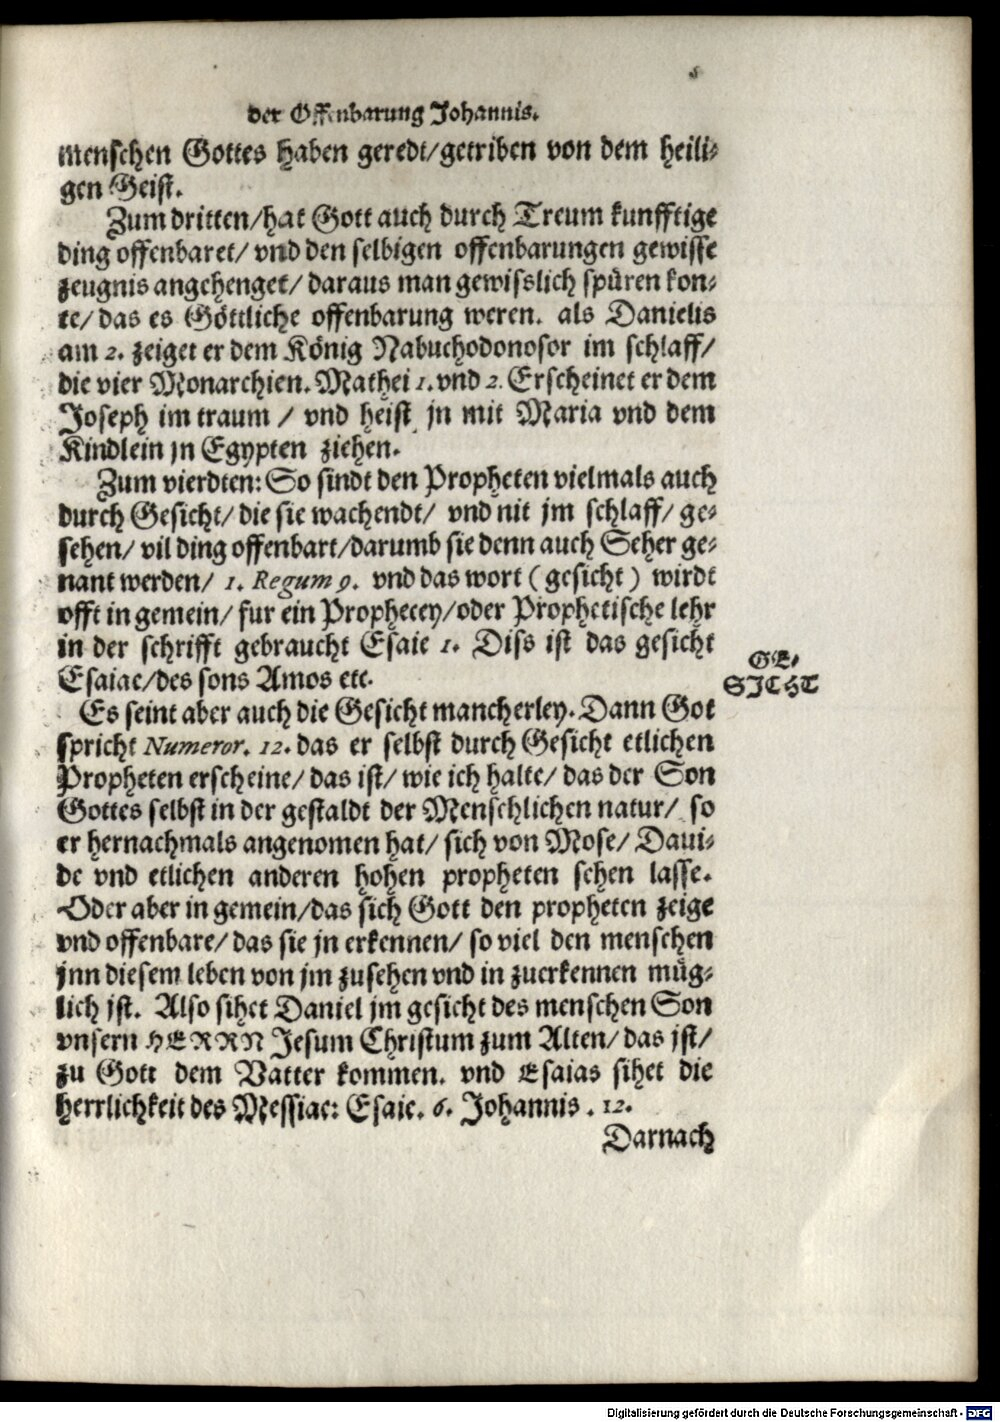 der Offenbarung Johannis.
menschen Gottes haben geredt/getriben von dem heili-
gen Geist.
Zum dritten/hat Gott auch durch Treum kunfftige
ding offenbaret/ vnd den selbigen offenbarungen gewisse
zeugnis angehenget/ daraus man gewisslich spüren kon-
te/ das es Göttliche offenbarung weren. als Danielis
am 2. zeiget er dem König Nabuchodonosor im schlaff/
die vier Monarchien. Mathei 1. vnd 2. Erscheinet er dem
Joseph im traum / vnd heist jn mit Maria vnd dem
Kindlein jn Egypten ziehen.
Zum vierdten: So sindt den Propheten vielmals auch
durch Gesicht/ die sie wachendt/ vnd nit jm schlaff/ ge-
sehen/ vil ding offenbart/darumb sie denn auch Seher ge-
nant werden/ 1. Regum 9. vnd das wort (gesicht) wirdt
offt in gemein/ fur ein Prophecey/oder Prophetische lehr
in der schrifft gebraucht Esaie 1. Diss ist das gesicht
Esaiae/des sons Amos etc.
GE-
SICHT
Es seint aber auch die Gesicht mancherley. Dann Got
spricht Numeror. 12. das er selbst durch Gesicht etlichen
Propheten erscheine/ das ist/ wie ich halte/ das der Son
Gottes selbst in der gestaldt der Menschlichen natur/ so
er hernachmals angenomen hat/ sich von Mose/ Daui-
de vnd etlichen anderen hohen propheten sehen lasse.
Oder aber in gemein/das sich Gott den propheten zeige
vnd offenbare/ das sie jn erkennen/ so viel den menschen
jnn diesem leben von jm zusehen vnd in zuerkennen müg-
lich jst. Also sihet Daniel jm gesicht des menschen Son
vnsern HERRN Jesum Christum zum Alten/ das jst/
zu Gott dem Vatter kommen. vnd Esaias sihet die
herrlichkeit des Messiae: Esaie. 6. Johannis . 12.
Darnach
Digitalisierung gefördert durch die Deutsche Forschungsgemeinschaft - DFG